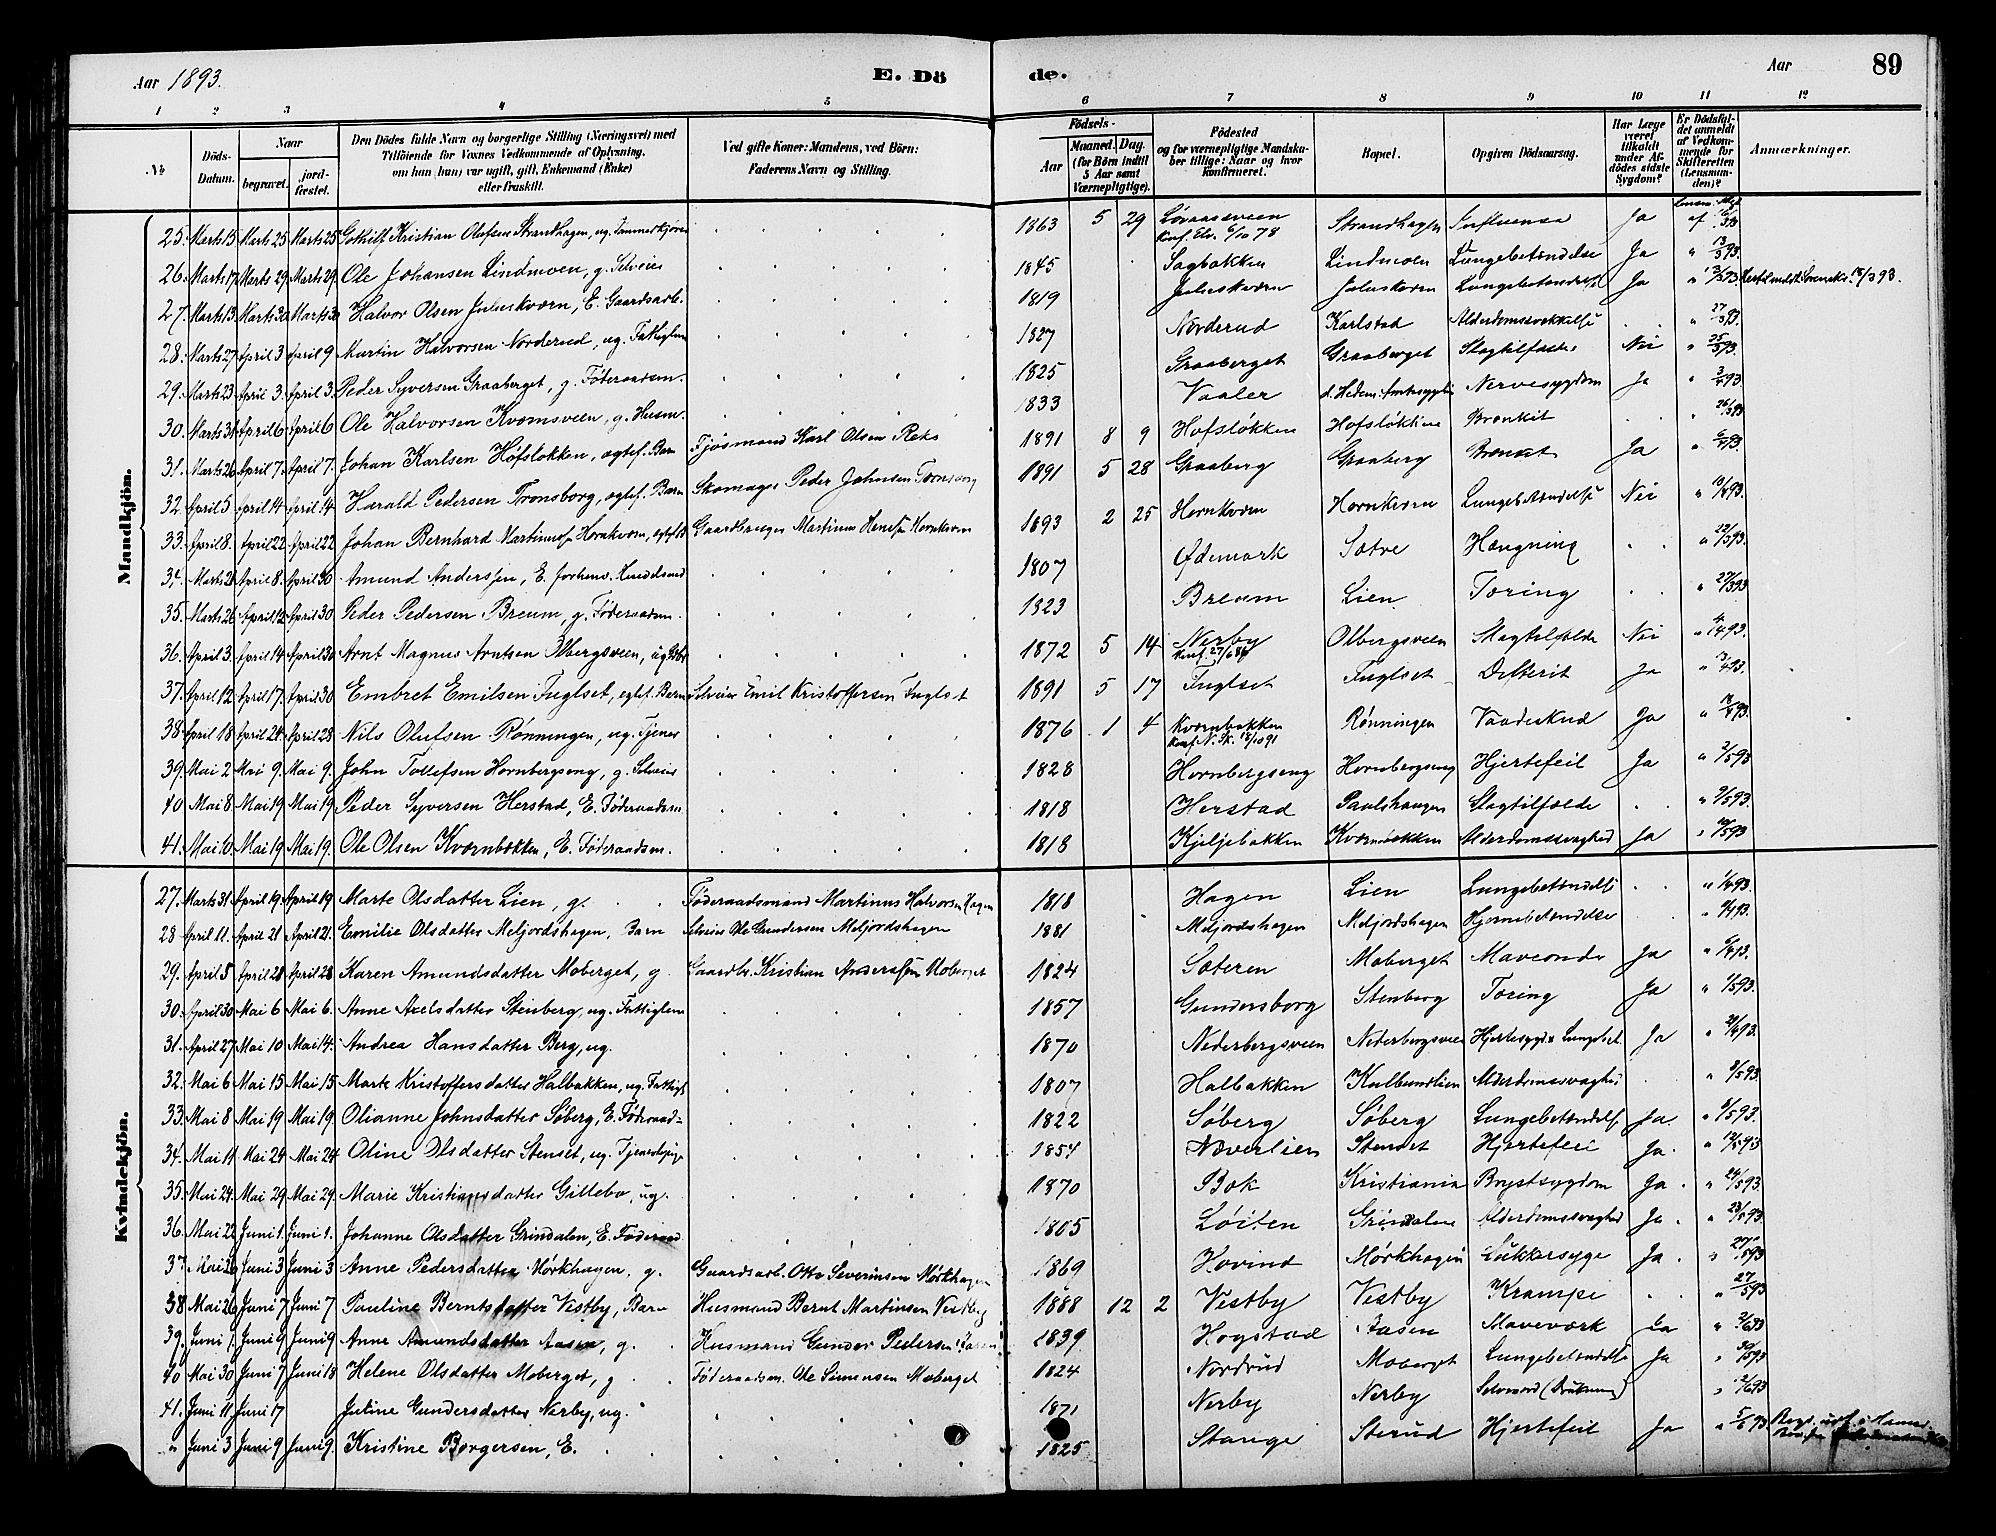 Aar 1893. E. Dö de. Aar 89
1 2 3 4 5 6 7 8 9 10 11 12
No Döds-Datum. Naar begravet. jord-fæstet. Den Dödes fulde Navn og borgerlige Stilling (Næringsvei) med Tilföiende for Voxnes Vedkommende af Oplysning. om han (hun) var ugift, gift, Enkemand (Enke) eller fraskilt. Ved gifte Koner: Mandens, ved Börn: Faderens Navn og Stilling. Födsels- Aar Maaned. Dag. (for Börn indtil 5 Aar samt Værnepligtige). Födested og for værnepligtige Mandskaber tillige: Naar og hvor konfirmeret. Bopæl. Opgiven Dödsaarsag. Har Læge været tilkaldt under Afdödes sidste Sygdom? Er Dödsfaldet anmeldt af Vedkommende for Skifteretten (Lensmanden)? Anmærkninger.
Mandkjön.
25. Marts 15 Marts 25 Marts 25 Gothilf Kristian Olufsen Strandhagen, ug. Tømmerkjører 1863 5 29 Løvaasveen Konf. Elv. 6/10 78 Strandhagen Influensa Ja
26. Marts 17 Marts 29. Marts 29. Ole Johansen Lindmoen, g. Selveier 1845 Sagbakken Lindmoen Lungebetændelse Ja " 13/3 93.
27. Marts 13. Marts 30 Marts 30 Halvor Olsen Juluskværn, E. Gaardsarb. 1819 Juluskværn Juluskværn Lungebetændelse Ja
28. Marts 27 April 3 April 9 Martin Halvorsen Norderud, ug. Fattiglem 1827 Norderud Karlstad Alderdomssvækkelse " 27/3 93.
29. Marts 23 April 3. April 3. Peder Syversen Graaberget, g. Føderaadsm. 1825 Graaberget Graaberget Slagtilfælde Nei " 25/3 93.
30. Marts 31 April 6 April 6 Ole Halvorsen Kvomsveen, g. Husm. 1833 Vaaler d. Hedem. Amtssygehus Nervesygdom Ja " 3/4 93
31. Marts 26 April 7. April 7. Johan Karlsen Hofsløkken, ægtef. Barn Fjøsmand Karl Olsen Roks 1891 8 9 Hofsløkken Hofsløkken Bronkit " 26/3 93
32. April 5 April 14 April 14 Harald Pedersen Tronsborg, ægtef. Barn Skomager Peder Johnsen Tronsborg 1891 5 28 Graaberg Graaberg Bronkit Ja " 6/4 93.
33. April 8. April 22 April 22 Johan Bernhard Martinusen Hornkværn, ægtef. B Gaardbruger Martinus Hansen Hornkværn 1893 2 25 Hornkværn Hornkværn Lungebetændelse Nei " 10/4 93.
34. Marts 21 April 8. April 30 Amund Anderssen, E. forhenv. Handelsmand 1807 Ødemark Sætre Hængning " 22/3 93.
35. Marts 26 April 12 April 30 Peder Pedersen Breum, g. Føderaadsm. 1823 Breum Lien Tæring " 27/3 93
36. April 3 April 14 April 30 Arnt Magnus Arntsen Olbergsveen, ug. 1872 5 14 Nerby Konf. Olbergsveen Slagtilfælde Nei " 4/4 93.
37. April 12 April 17. April 30 Embret Emilsen Fuglset, ægtef. Barn Selveier Emil Kristoffersen Fuglset 1891 5 17 Fuglset Fuglset Difterit Ja " 13/4 93.
38. April 18 April 24. April 28 Nils Olufsen Rønningen, ug. Tjener 1876 1 4 Kværnbakken Konf. N. Sk. 18/10 91 Rønningen Vaadeskud Ja " 18/4 93.
39. Mai 2 Mai 9. Mai 9. John Tollefsen Hornbergseng, g. Selveier 1828 Hornbergseng Hornbergseng Hjertefeil Ja " 2/5 93
40 Mai 8 Mai 19 Mai 19 Peder Syversen Herstad, E. Føderaadsm. 1818 Herstad Paulshaugen Slagtilfælde " 9/5 93.
41. Mai 10. Mai 19 Mai 19. Ole Olsen Kværnbakken, E. Føderaadsm. 1818 Kjeljebakken Kværnbakken Alderdomssvaghed Ja " 10/5 93
Kvindekjön.
27. Marts 31 April 19. April 19 Marte Olsdatter Lien, g. Føderaadsmand Martinus Halvorsen Hagen 1818 Hagen Lien Lungebetændelse " 1/4 93.
28 April 11. April 21 April 21. Emilie Olsdatter Meljordshagen, Barn Selveier Ole Gundersen Meljordshagen 1881 Meljordshagen Meljordshagen Hjernebetændelse
29. April 5 April 28 April 28 Karen Amundsdatter Moberget, g. Gaardbr. Kristian Anderssen Moberget 1824 Sæteren Moberget Maveonde Ja " 6/4 93
30. April 30 Mai 6 Mai 6. Anne Axelsdatter Stenberg, ug. Fattiglem 1857 Gundersborg Stenberg Tæring Ja " 1/5 93.
31. April 27 Mai 10 Mai 14. Andrea Hansdatter Berg, ug. 1870 Nederbergsveen Nederbergsveen Hjertesygd. & Lungebet. Ja
32. Mai 6 Mai 15 Mai 15 Marte Kristoffersdatter Halbakken, ug. Fattigl. 1807 Halbakken Alderdomssvaghed
33. Mai 8 Mai 19 Mai 19. Olianne Johnsdatter Søberg, E. Føderaad- 1822 Søberg Søberg Lungebetændelse Ja
34. Mai 11 Mai 24 Mai 24 Oline Olsdatter Stenset, ug. Tjenestepige 1854 Nøverlien Stenset Hjertefeil Ja.
35. Mai 24. Mai 29 Mai 29. Marie Kristiansdatter Gillebo, ug. 1870 Bok Kristiania Brystsygdom Ja. " 24/5 93.
36. Mai 22 Juni 1. Juni 1. Johanne Olsdatter Grindalen, E. Føderaad 1805 Løiten Grindalen Alderdomssvaghed Ja. " 23/5 93.
37. Mai 26 Juni 3 Juni 3 Anne Pedersdatter Mørkhagen, g. Gaardsarb. Otto Severinsen Mørkhagen 1869 Hovind Mørkhagen Sukkersyge Ja. " 27/5 93
38 Mai 26 Juni 7 Juni 7 Pauline Berntsdatter Vestby, Barn Husmand Bernt Martinsen Vestby 1888 12 2 Vestby Vestby Krampe " 27/5 93
39. Juni 1. Juni 9 Juni 9 Anne Amundsdatter Aasen, g. Husmand Gunder Pedersen Aasen 1839 Hogstad Aasen Maveværk Ja " 2/6 93
40 Mai 30 Juni 7 Juni 18 Helene Olsdatter Moberget, g Føderaadsm. Ole Simensen Moberget 1824 Nordrud Moberget Lungebetændelse Ja " 30/5 93
41. Juni 11 Juni 17 Juline Gundersdatter Nerby, ug. 1871 Nerby Nerby Selvmord (Drukning) " 12/6 93
" Juni 3 Juni 9 Juni 9. Kristine Borgersen, E. 1825 Stange Sterud Hjertefeil Ja " 5/6 93.